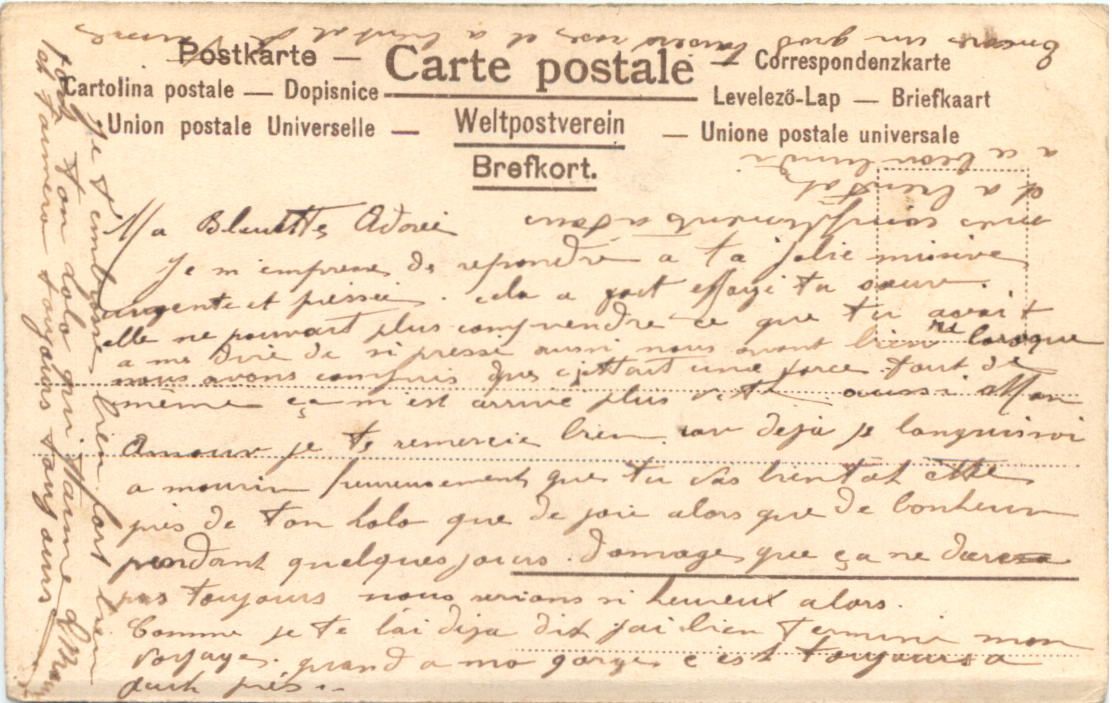 Postkarte — Carte postale — Correspondenzkarte
Cartolina postale — Dopisnice — Levelező-Lap — Briefkaart
Union postale Universelle — Weltpostverein — Unione postale universale
Brefkort.
Ma Bleuette Adorée
Je m'empresse de repondre a ta jolie missive
urgente et pressée. cela a fait effrayé ta sœur.
elle ne pouvait plus comprendre ce que tu avait
a me dire de si pressé aussi nous avont bien
nous avons compris que c'ettait une farce tout de
même ça m'est arrivé plus vite aussi Mon
Amour je te remercie bien car deja je languissai
a mourir heureusement que tu vas bientot ette
près de ton lolo que de joie alors que de bonheur
pendant quelques jours. domage que ça ne dure
pas toujours nous serions si heureux alors.
Comme je te l'ai deja dit j'ai bien terminé mon
voyage. quand a ma gorge c'est toujours a
peut près..
Je t'embrasse bien fort bien
fort ton lolo qui t'aime
et t'aimera toujours toujours
Encore un gros baiser et a bientot
et a bientot
a a bien lundi